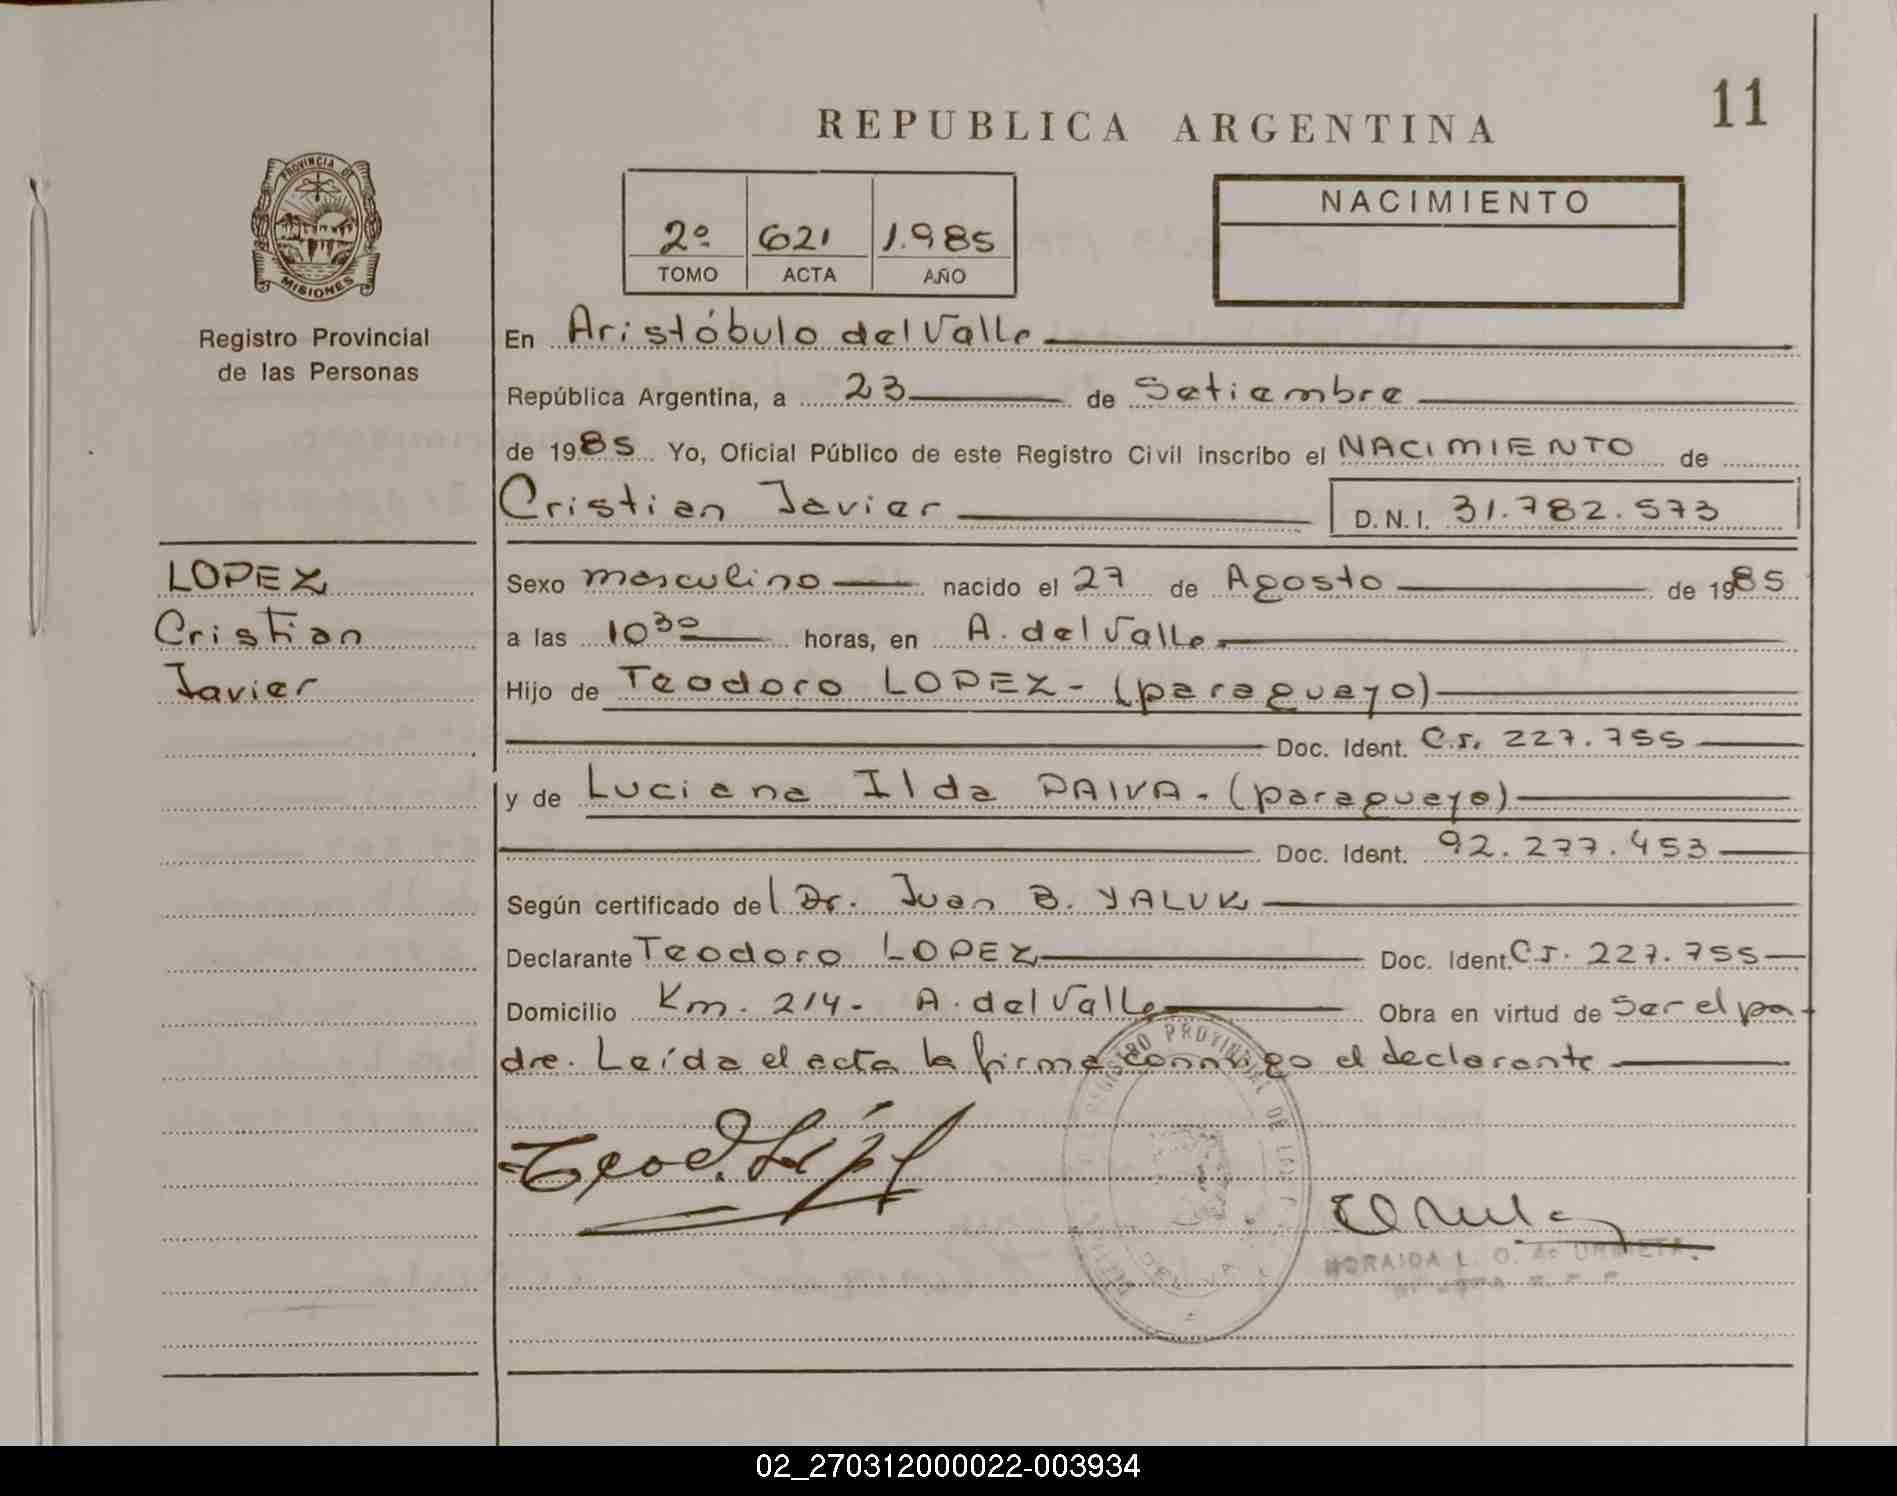 11
REPUBLICA ARGENTINA
PROVINCIA DE
MISIONES
Registro Provincial
de las Personas
2º 621 1.985
TOMO ACTA AÑO
NACIMIENTO
En Aristóbulo del Valle
República Argentina, a 23 de Setiembre
de 1985 Yo, Oficial Público de este Registro Civil inscribo el NACIMIENTO de
Cristian Javier D.N.I. 31.782.573
LOPEZ
Cristian
Javier
Sexo masculino nacido el 27 de Agosto de 1985
a las 10³⁰ horas, en A. del Valle
Hijo de Teodoro LOPEZ - (paraguayo)
Doc. Ident. C.I. 227.755
y de Luciana Ilda PAIVA - (paraguaya)
Doc. Ident. 92.277.453
Según certificado del Dr. Juan B. YALUK
Declarante Teodoro LOPEZ Doc. Ident. C.I. 227.755
Domicilio Km. 214 - A. del Valle Obra en virtud de ser el pa-
dre. Leída el acta la firma conmigo el declarante
REGISTRO PROVINCIAL DE LAS
Teod. López
HORAIDA L. O. de URRIETA
02_270312000022-003934